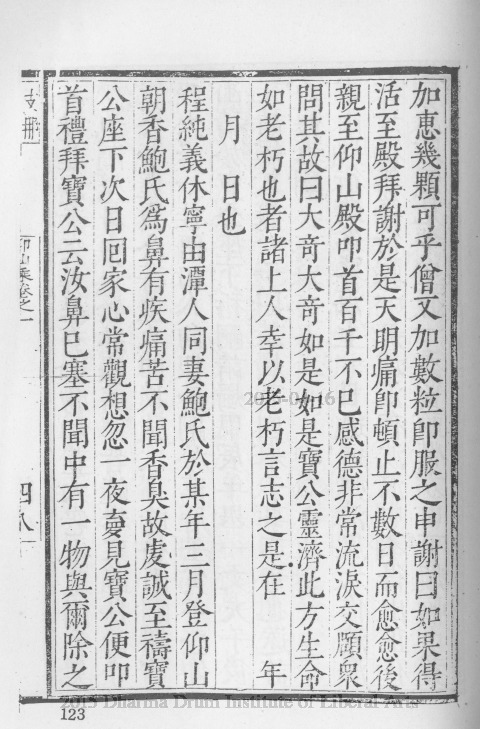 加惠幾顆可乎僧又加數粒卽服之申謝曰如果得
活至殿拜謝於是天明痛卽頓止不數日而愈愈後
親至仰山殿叩首百千不已感德非常流淚交顋衆
問其故曰大奇大奇如是如是寶公靈濟此方生命
如老朽也者諸上人幸以老朽言志之是在　　年
　月　日也
程純義休寧由潭人同妻鮑氏於某年三月登仰山
朝香鮑氏爲鼻有疾痛苦不聞香臭故虔誠至禱寶
公座下次日囘家心常觀想忽一夜夢見寶公便叩
首禮拜寶公云汝鼻已塞不聞中有一物與爾除之
仰山乘卷之一
四八
123
2015 Dharma Drum Institute of Liberal Arts